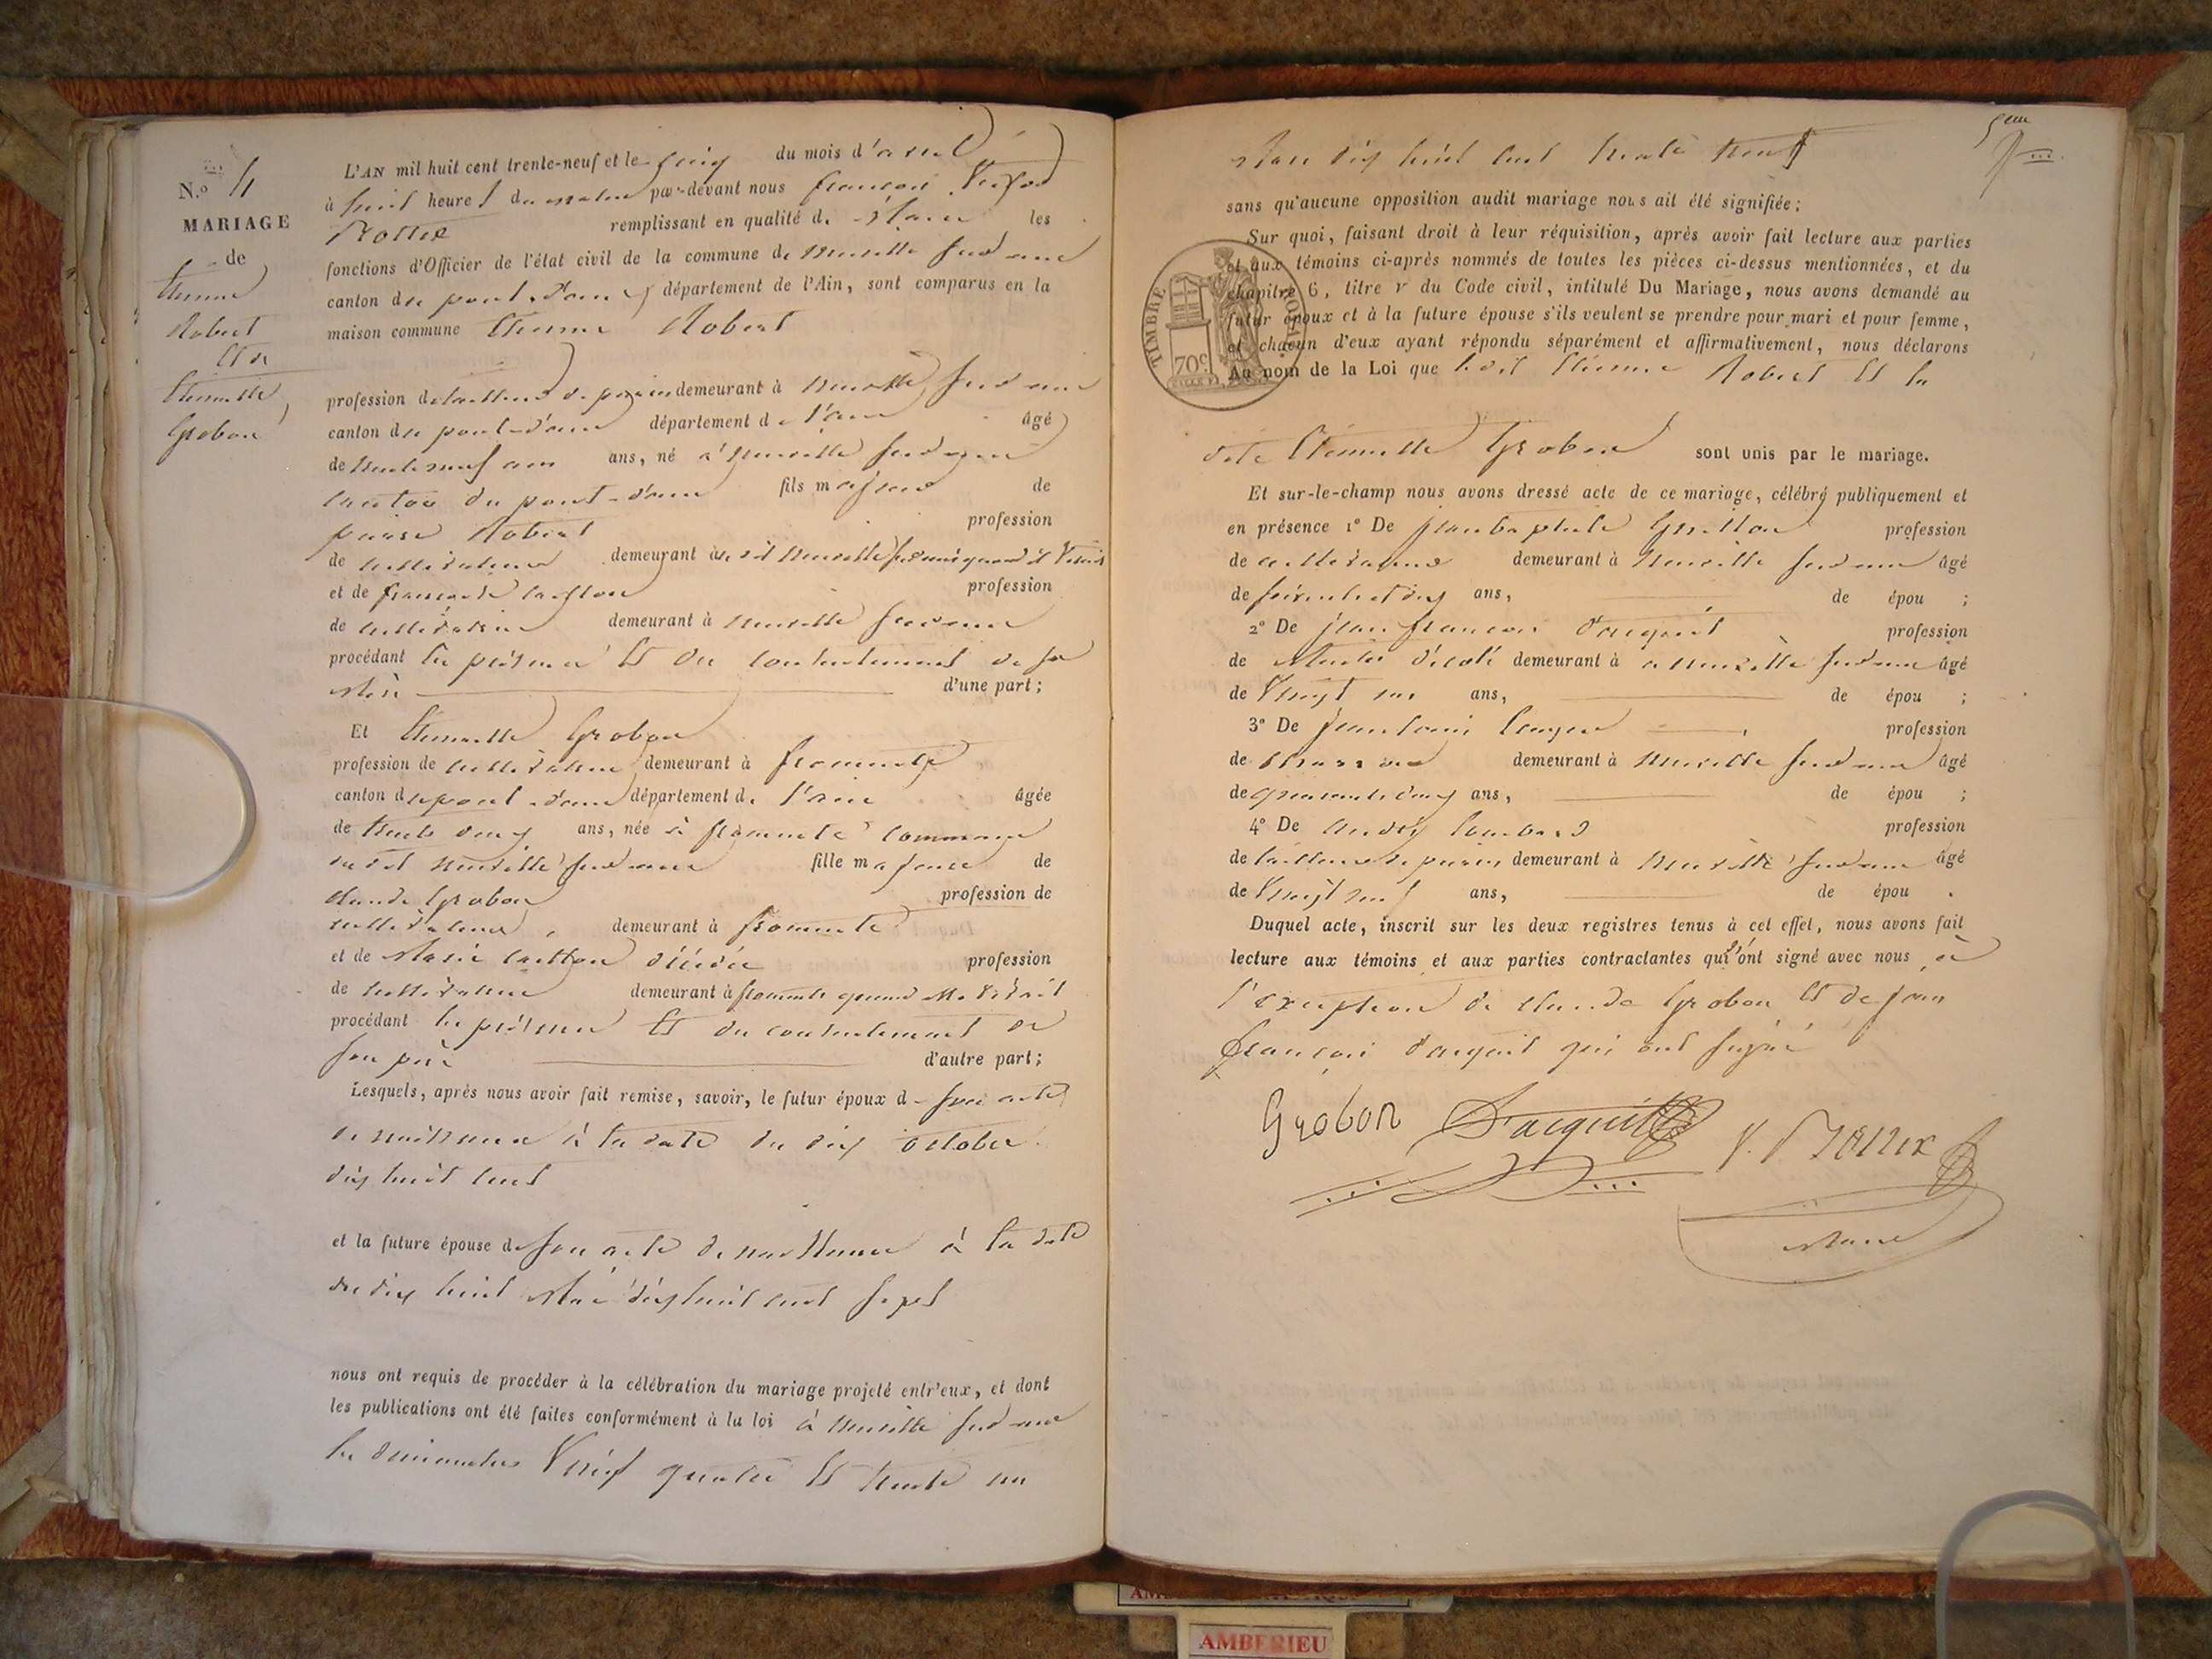 N.o 4
MARIAGE
de
Etienne
Robert
Et de
Etiennette
Grobon
L'AN mil huit cent trente-neuf et le cinq du mois d'avril
à huit heures du matin par-devant nous françois
remplissant en qualité de Maire les
fonctions d'Officier de l'état civil de la commune de Neuville sur ain
canton de pont d'ain, département de l'Ain, sont comparus en la
maison commune Etienne Robert
profession de tailleur de pierre demeurant à Neuville sur ain
canton de pont-d'ain département de l'ain âgé
de trente neuf ans ans, né à Neuville sur ain
canton du pont-d'ain fils majeur de
pierre Robert profession
de cultivateur demeurant à dit Neuville sur ain quand il vivait
et de françoise profession
de cultivatrice demeurant à Neuville sur ain
procédant de Et du consentement de sa
Mère d'une part;
Et Etiennette Grobon
profession de cultivatrice demeurant à fromente
canton de pont-d'ain département de l'ain âgée
de trente deux ans, née à fromente commune
du dit Neuville sur ain fille majeure de
claude Grobon profession de
cultivateur, demeurant à fromente
et de Marie décédée profession
de cultivatrice demeurant à fromente quand elle vivait
procédant Et du consentement de
son père d'autre part;
Lesquels, après nous avoir fait remise, savoir, le futur époux de son acte
de naissance à la date du dix octobre
dix huit cent
et la future épouse de son acte de naissance à la date
du dix huit Mai dix huit cent sept
nous ont requis de procéder à la célébration du mariage projeté entr'eux, et dont
les publications ont été faites conformément à la loi à Neuville sur ain
les dimanches Vingt quatre Et trente un
Mars dix huit cent trente neuf
sans qu'aucune opposition audit mariage nous ait été signifiée;
Sur quoi, faisant droit à leur réquisition, après avoir fait lecture aux parties
et aux témoins ci-après nommés de toutes les pièces ci-dessus mentionnées, et du
chapitre 6, titre V du Code civil, intitulé Du Mariage, nous avons demandé au
futur époux et à la future épouse s'ils veulent se prendre pour mari et pour femme,
et chacun d'eux ayant répondu séparément et affirmativement, nous déclarons
Au nom de la Loi que le dit Etienne Robert Et la
TIMBRE ROYAL
70c
dite Etiennette Grobon sont unis par le mariage.
Et sur-le-champ nous avons dressé acte de ce mariage, célébré publiquement et
en présence 1° De jean baptiste profession
de cultivateur demeurant à Neuville sur ain âgé
de soixante et dix ans, de épou ;
2° De jean françois Dacquit profession
de Maitre d'école demeurant à a Neuville sur ain âgé
de Vingt ans, de épou ;
3° De jean louis profession
de demeurant à Neuville sur ain âgé
de quarante cinq ans, de épou ;
4° De profession
de tailleur de pierre demeurant à Neuville sur ain âgé
de Vingt ans, de épou .
Duquel acte, inscrit sur les deux registres tenus à cet effet, nous avons fait
lecture aux témoins et aux parties contractantes qui n'ont signé avec nous à
l'exception de claude Grobon Et de jean
françois Dacquit qui ont signé
Grobon Dacquit
Maire
AMBERIEU